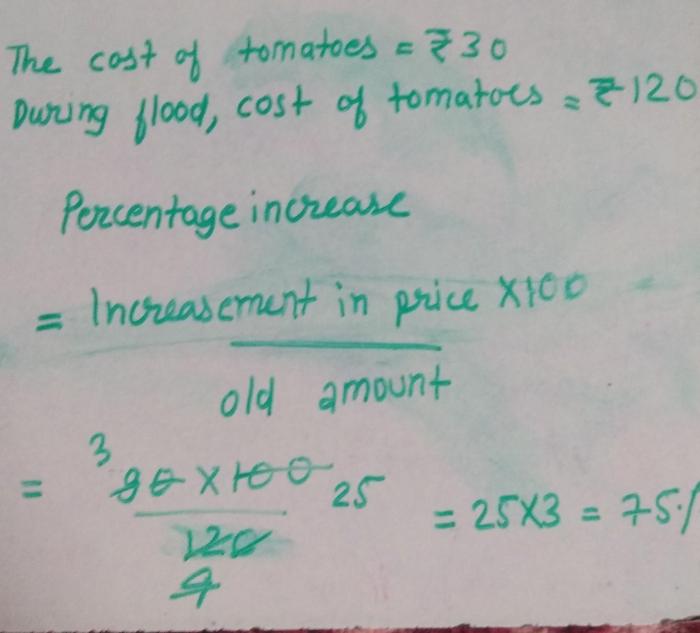 The cost of tomatoes = ₹30
During flood, cost of tomatoes = ₹120
Percentage increase
= Increasement in price X100
old amount
3
= 90 X 100 25 = 25X3 = 75%
120
4